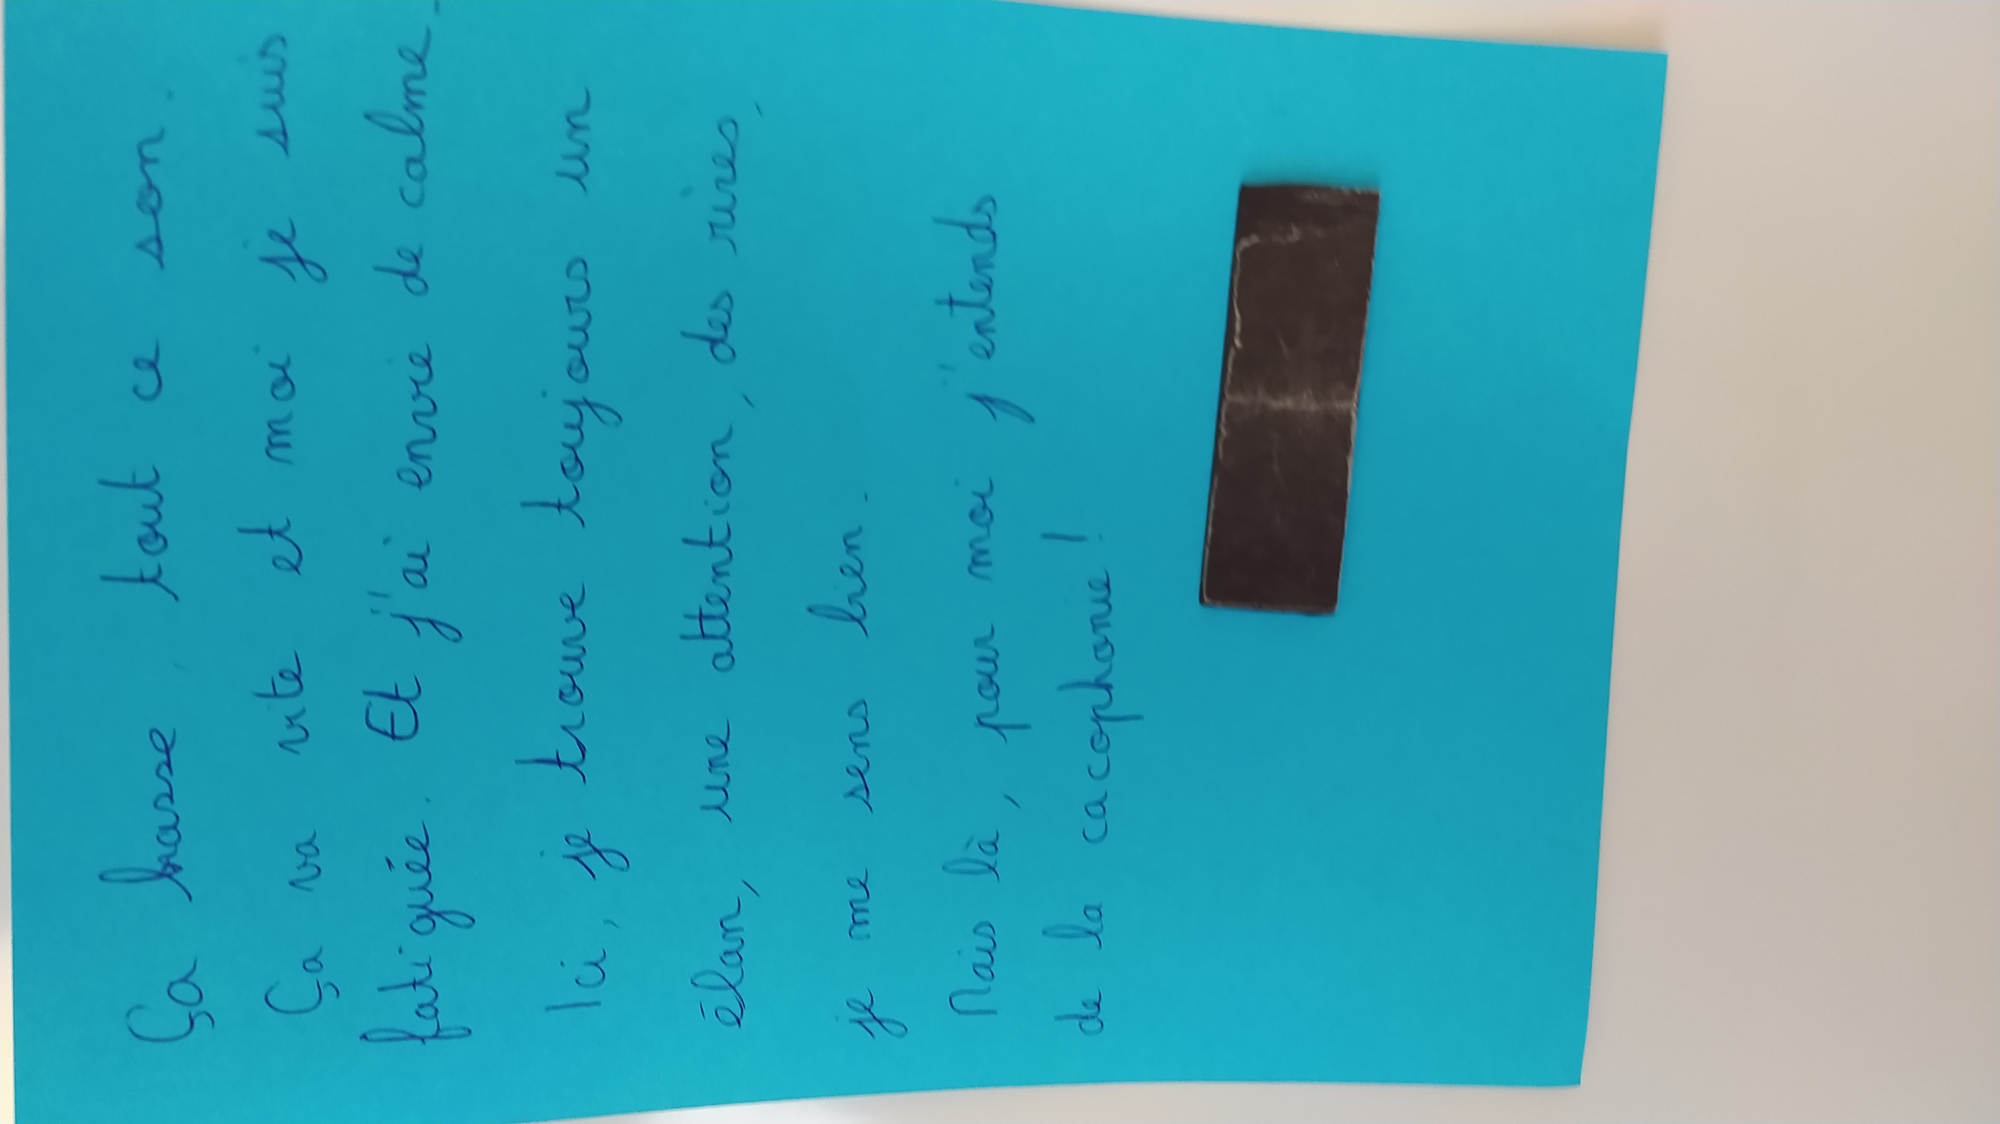 Ça brasse, tout ce son.
Ça va vite et moi je suis
fatiguée. Et j'ai envie de calme.
Ici, je trouve toujours un
élan, une attention, des rires,
je me sens bien.
Mais là, pour moi j'entends
de la cacophonie !